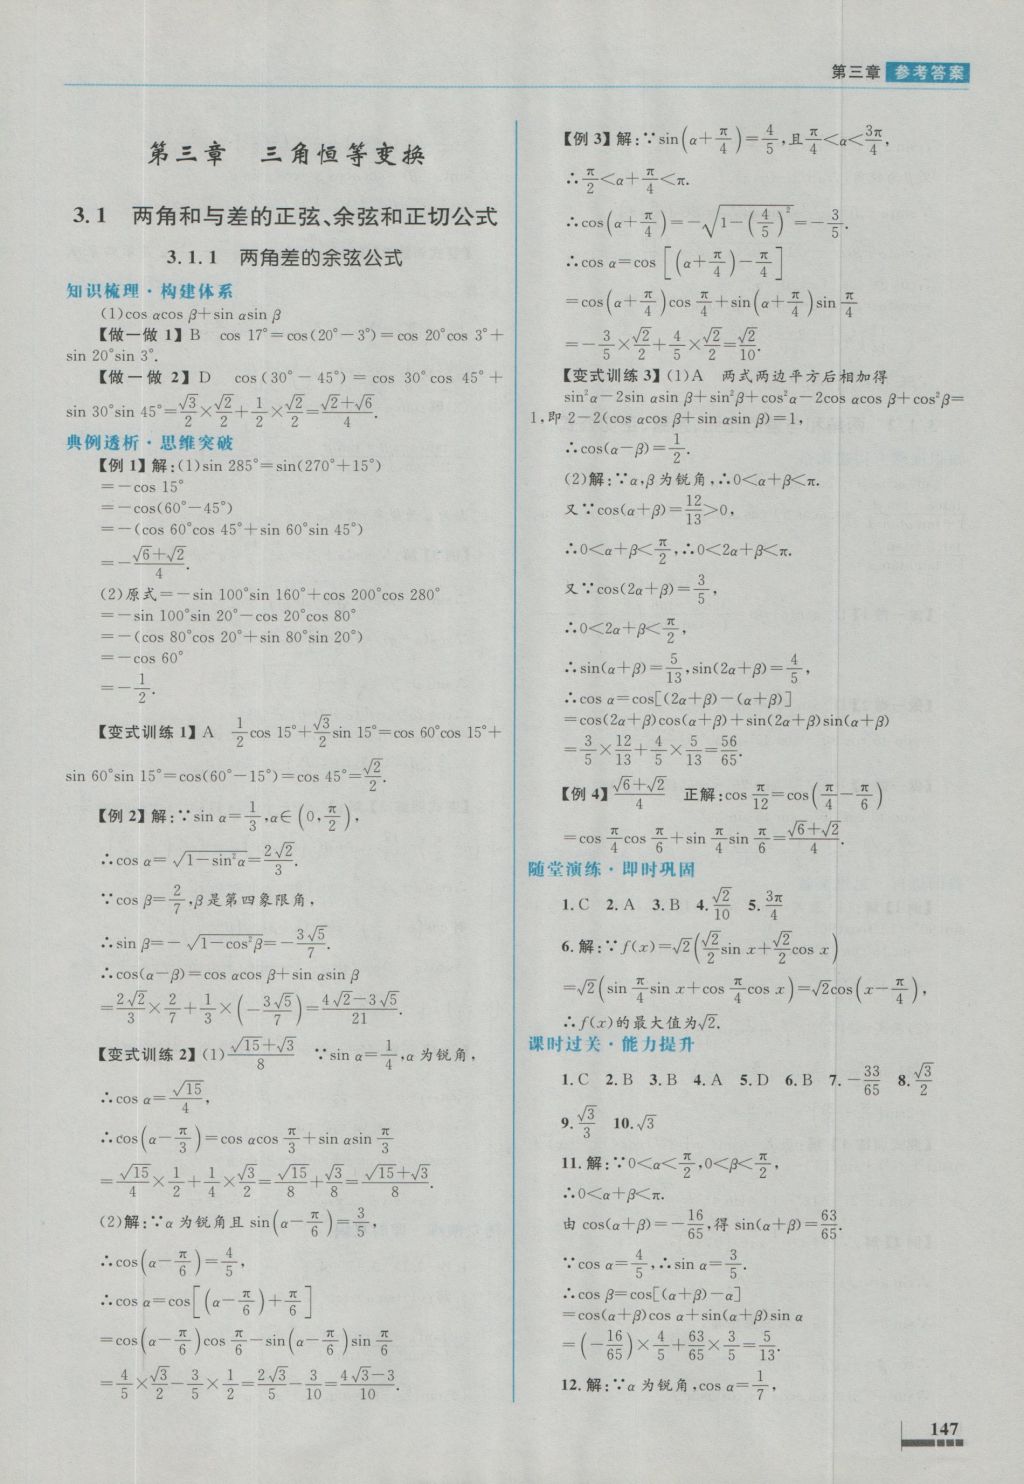 第三章 参考答案
第三章 三角恒等变换
3.1 两角和与差的正弦、余弦和正切公式
3.1.1 两角差的余弦公式
知识梳理·构建体系
(1)cos αcos β+sin αsin β
【做一做 1】B cos 17°=cos(20°-3°)=cos 20°cos 3°+
sin 20°sin 3°.
【做一做 2】D cos(30°-45°)=cos 30°cos 45°+
sin 30°sin 45°=√3/2×√2/2+1/2×√2/2=(√2+√6)/4.
典例透析·思维突破
【例 1】解:(1)sin 285°=sin(270°+15°)
=-cos 15°
=-cos(60°-45°)
=-(cos 60°cos 45°+sin 60°sin 45°)
=-(√6+√2)/4.
(2)原式=-sin 100°sin 160°+cos 200°cos 280°
=-sin 100°sin 20°-cos 20°cos 80°
=-(cos 80°cos 20°+sin 80°sin 20°)
=-cos 60°
=-1/2.
【变式训练 1】A 1/2cos 15°+√3/2sin 15°=cos 60°cos 15°+
sin 60°sin 15°=cos(60°-15°)=cos 45°=√2/2.
【例 2】解:∵sin α=1/3,α∈(0,π/2),
∴cos α=√(1-sin²α)=2√2/3.
∵cos β=2/7,β是第四象限角,
∴sin β=-√(1-cos²β)=-3√5/7.
∴cos(α-β)=cos αcos β+sin αsin β
=2√2/3×2/7+1/3×(-3√5/7)=(4√2-3√5)/21.
【变式训练 2】(1)(√15+√3)/8 ∵sin α=1/4,α为锐角,
∴cos α=√15/4,
∴cos(α-π/3)=cos αcos π/3+sin αsin π/3
=√15/4×1/2+1/4×√3/2=√15/8+√3/8=(√15+√3)/8.
(2)解:∵α为锐角且 sin(α-π/6)=3/5,
∴cos(α-π/6)=4/5,
∴cos α=cos[(α-π/6)+π/6]
=cos(α-π/6)cos π/6-sin(α-π/6)sin π/6
=4/5×√3/2-3/5×1/2=2√3/5-3/10=(4√3-3)/10.
【例 3】解:∵sin(α+π/4)=4/5,且π/4<α<3π/4,
∴π/2<α+π/4<π.
∴cos(α+π/4)=-√(1-(4/5)²)=-3/5.
∴cos α=cos[(α+π/4)-π/4]
=cos(α+π/4)cos π/4+sin(α+π/4)sin π/4
=-3/5×√2/2+4/5×√2/2=√2/10.
【变式训练 3】(1)A 两式两边平方后相加得
sin²α-2sin αsin β+sin²β+cos²α-2cos αcos β+cos²β=
1,即 2-2(cos αcos β+sin αsin β)=1,
∴cos(α-β)=1/2.
(2)解:∵α,β为锐角,∴0<α+β<π.
又∵cos(α+β)=12/13>0,
∴0<α+β<π/2,∴0<2α+β<π.
又∵cos(2α+β)=3/5,
∴0<2α+β<π/2,
∴sin(α+β)=5/13,sin(2α+β)=4/5,
∴cos α=cos[(2α+β)-(α+β)]
=cos(2α+β)cos(α+β)+sin(2α+β)sin(α+β)
=3/5×12/13+4/5×5/13=56/65.
【例 4】(√6+√2)/4 正解:cos π/12=cos(π/4-π/6)
=cos π/4cos π/6+sin π/4sin π/6=(√6+√2)/4.
随堂演练·即时巩固
1.C 2.A 3.B 4.√2/10 5.3π/4
6.解:∵f(x)=√2(√2/2sin x+√2/2cos x)
=√2(sin π/4sin x+cos π/4cos x)=√2cos(x-π/4),
∴f(x)的最大值为√2.
课时过关·能力提升
1.C 2.B 3.B 4.A 5.D 6.B 7.-33/65 8.√3/2
9.√3/3 10.√3
11.解:∵0<α<π/2,0<β<π/2,
∴0<α+β<π.
由 cos(α+β)=-16/65,得 sin(α+β)=63/65.
∵cos α=4/5,∴sin α=3/5.
∴cos β=cos[(α+β)-α]
=cos(α+β)cos α+sin(α+β)sin α
=(-16/65)×4/5+63/65×3/5=5/13.
12.解:∵α为锐角,cos α=1/7,
147